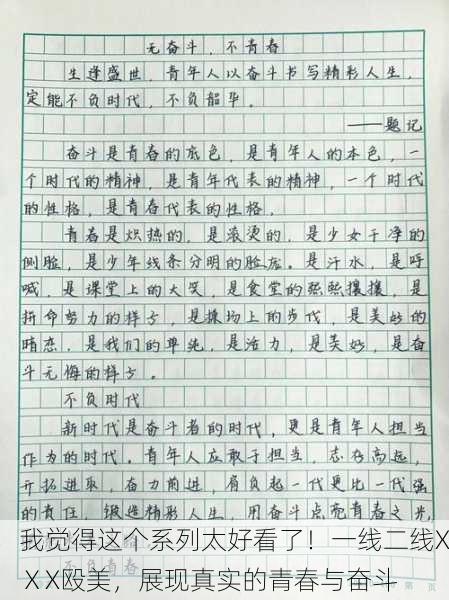 无奋斗，不青春
生逢盛世，青年人以奋斗书写精彩人生，
定能不负时代，不负韶华。
——题记
奋斗是青春的底色，是青年人的本色，一
个时代的精神，是青年代表的精神，一个时代
的性格，是青春代表的性格。
青春是炽热的，是滚烫的，是少女干净的
侧脸，是少年线条分明的脸庞。是汗水，是呼
喊，是课堂上的大笑，是食堂的熙熙攘攘，是
拼命努力的样子，是操场上的步伐，是美好的
暗恋，是我们的单纯，是活力，是美好，是奋
斗无悔的样子。
不负时代
新时代是奋斗者的时代，更是青年人担当
作为的时代。青年人应敢于担当，志存高远，
开拓进取，奋力前进，肩负起一代更比一代强
的责任，锻造精彩人生，用奋斗点亮青春之光
我觉得这个系列太好看了！一线二线X
XX殴美，展现真实的青春与奋斗
不负青春
第 页